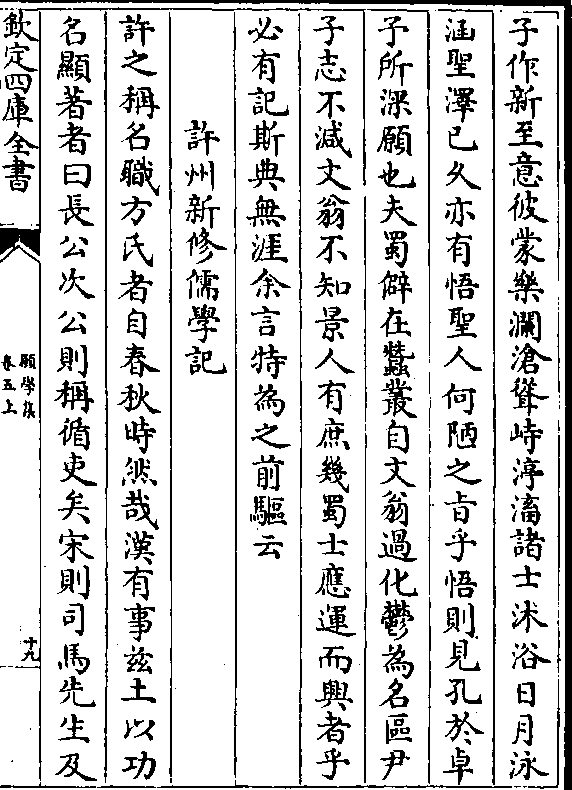 子作新至意彼蒙樂瀾滄聳峙渟滀諸士沐浴日月泳
涵聖澤已乆亦有悟聖人何陋之㫖乎悟則見孔於卓
予所深願也夫蜀僻在蠶叢自文翁過化鬱為名區尹
子志不减文翁不知景人有庶幾蜀士應運而興者乎
必有記斯典無涯余言特為之前驅云
許州新修儒學記
許之稱名職方氏者自春秋時然哉漢有事兹土以功
名顯著者曰長公次公則稱循吏矣宋則司馬先生及
欽定四庫全書
願學集
卷五上
十九